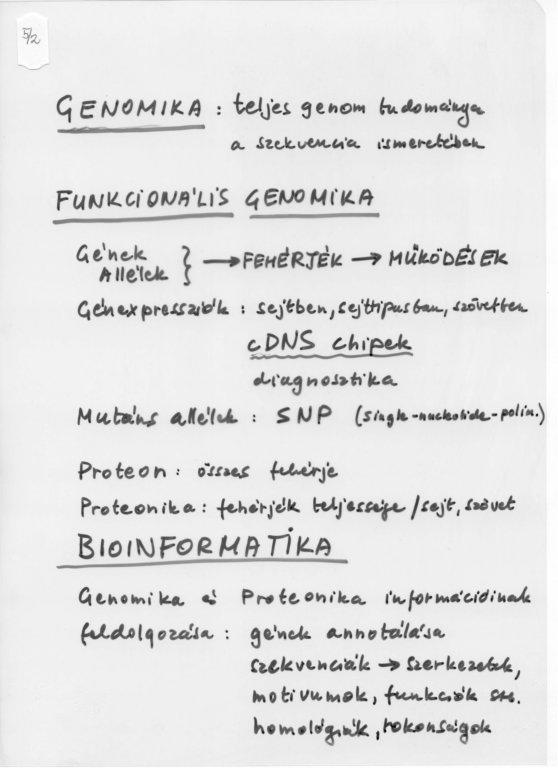 5/2
GENOMIKA : teljes genom tudománya
a szekvencia ismeretében
FUNKCIONÁLIS GENOMIKA
Gének
Allélek } → FEHÉRJÉK → MŰKÖDÉSEK
Génexpressziók : sejtben, sejttipusban, szövetben
cDNS chipek
diagnosztika
Mutáns allélek : SNP (single-nucleotide-polim.)
Proteon : összes fehérje
Proteonika : fehérjék teljessége / sejt, szövet
BIOINFORMATIKA
Genomika és Proteonika információinak
feldolgozása : gének annotálása
szekvenciák → szerkezetek,
motivumok, funkciók stb.
homológiák, rokonságok